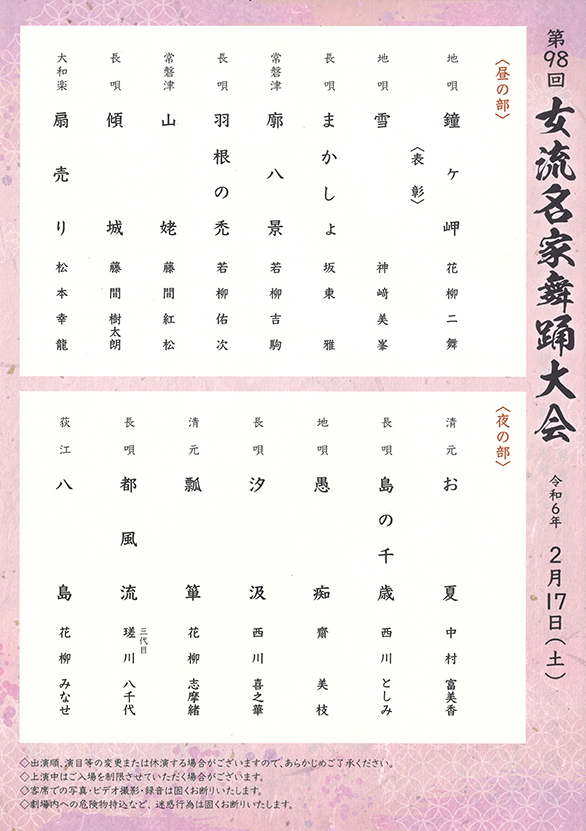 第98回 女流名家舞踊大会 令和6年 2月17日(土)
〈昼の部〉
地唄 鐘ヶ岬 花柳二舞
〈表彰〉
地唄 雪 神﨑美峯
長唄 まかしょ 坂東雅
常磐津 廓八景 若柳吉駒
長唄 羽根の禿 若柳佑次
常磐津 山姥 藤間紅松
長唄 傾城 藤間樹太朗
大和楽 扇売り 松本幸龍
〈夜の部〉
清元 お夏 中村富美香
長唄 島の千歳 西川としみ
地唄 愚痴 齋美枝
長唄 汐汲 西川喜之華
清元 瓢箪 花柳志摩緒
長唄 都風流 三代目 瑳川八千代
荻江 八島 花柳みなせ
◇出演順、演目等の変更または休演する場合がございますので、あらかじめご了承ください。
◇上演中はご入場を制限させていただく場合がございます。
◇客席での写真・ビデオ撮影・録音は固くお断りいたします。
◇劇場内への危険物持込など、迷惑行為は固くお断りいたします。